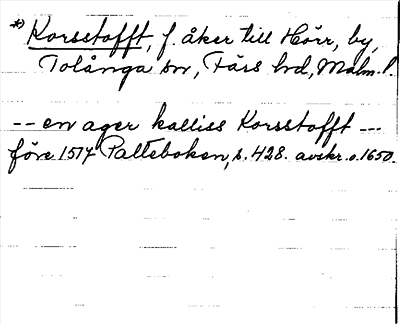 *) Korsstofft, f. åker till Hörr, by,
Tolånga sn, Färs hd, Malm. l.
-- en ager kalliss Korsstofft ---
före 1517 Palteboken, s. 428. avskr. o. 1650.